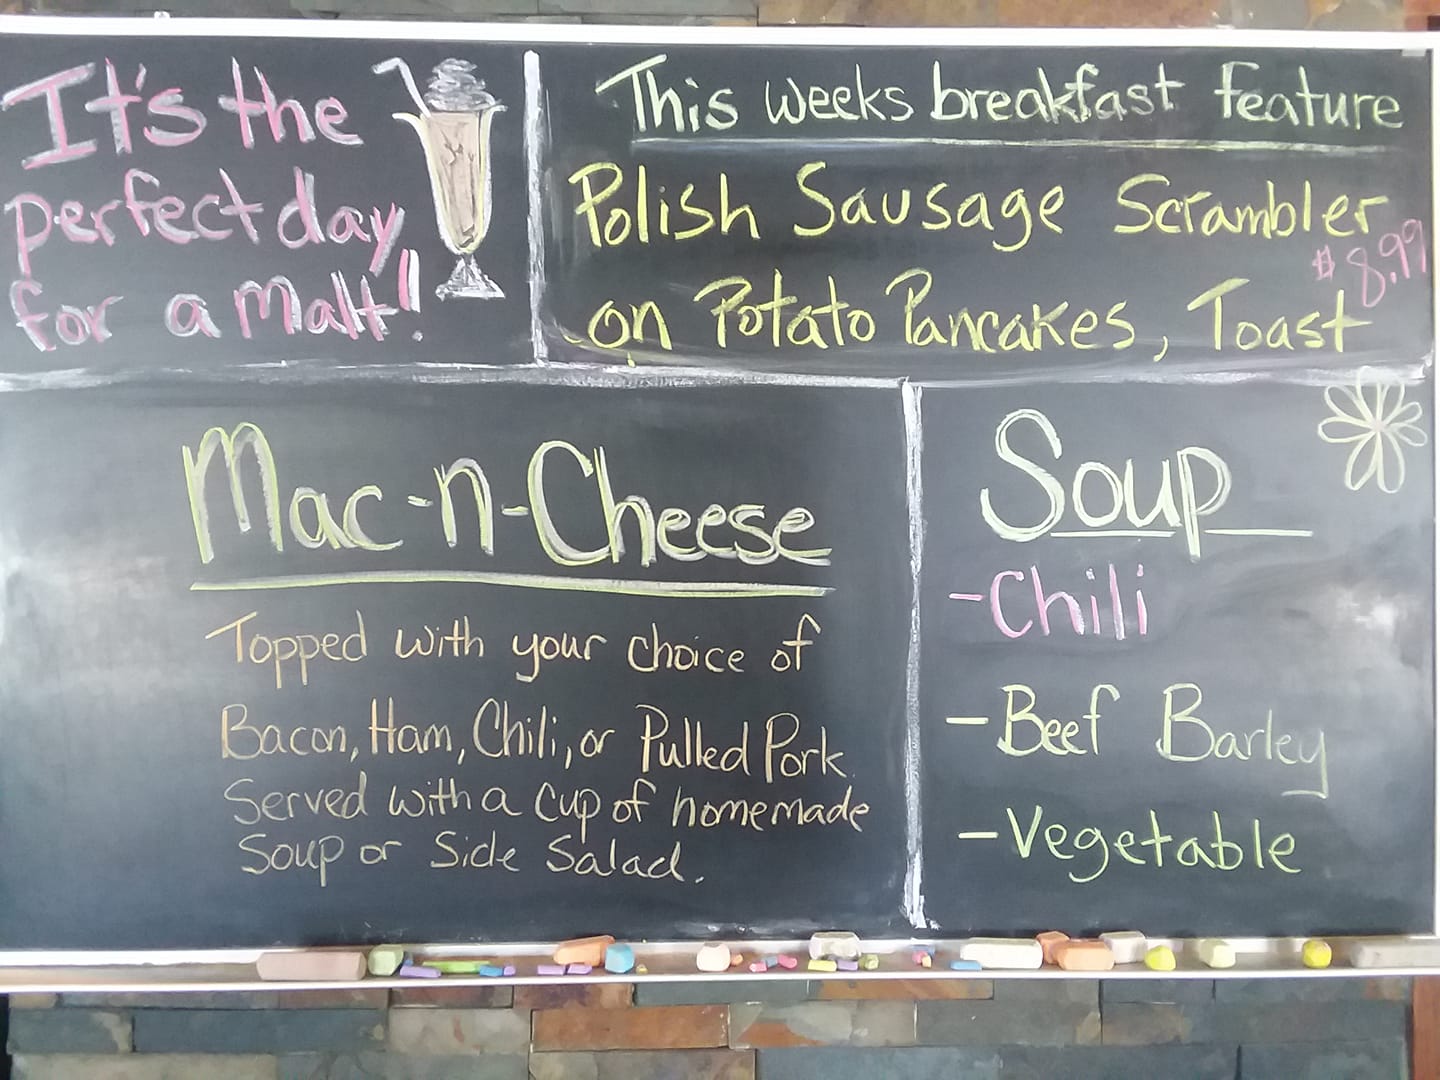 It's the
perfect day
for a Malt!
This weeks breakfast feature
Polish Sausage Scrambler
$8.99
on Potato Pancakes, Toast
Mac-n-Cheese
Topped with your choice of
Bacon, Ham, Chili, or Pulled Pork.
Served with a cup of homemade
Soup or Side Salad.
Soup
-Chili
-Beef Barley
-Vegetable